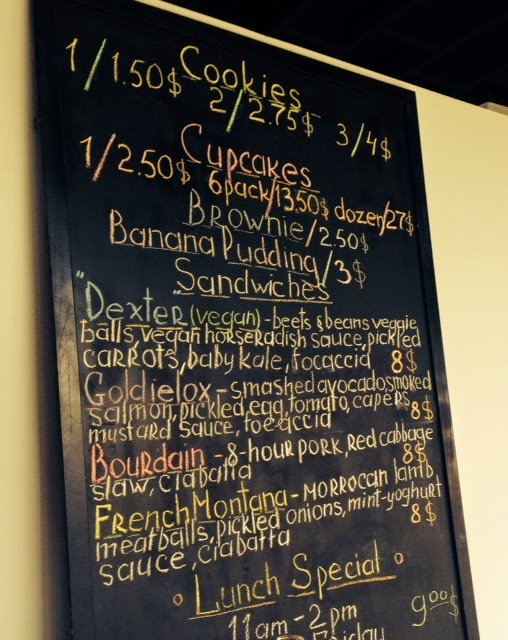 Cookies
1/1.50$ 2/2.75$ 3/4$
Cupcakes
1/2.50$ 6pack/13.50$ dozen/27$
Brownie/2.50$
Banana Pudding/3$
Sandwiches
"Dexter" (vegan) - beets & beans veggie
balls, vegan horseradish sauce, pickled
carrots, baby kale, focaccid 8$
Goldielox - smashed avocado smoked
salmon, pickled egg, tomato, capers,
mustard sauce, focaccia 8$
Bourdain - 8-hour pork, red cabbage
slaw, ciabatta 8$
French Montana - Morrocan lamb
meatballs, pickled onions, mint-yoghurt
sauce, ciabatta 8$
Lunch Special
11am - 2pm 9.00$